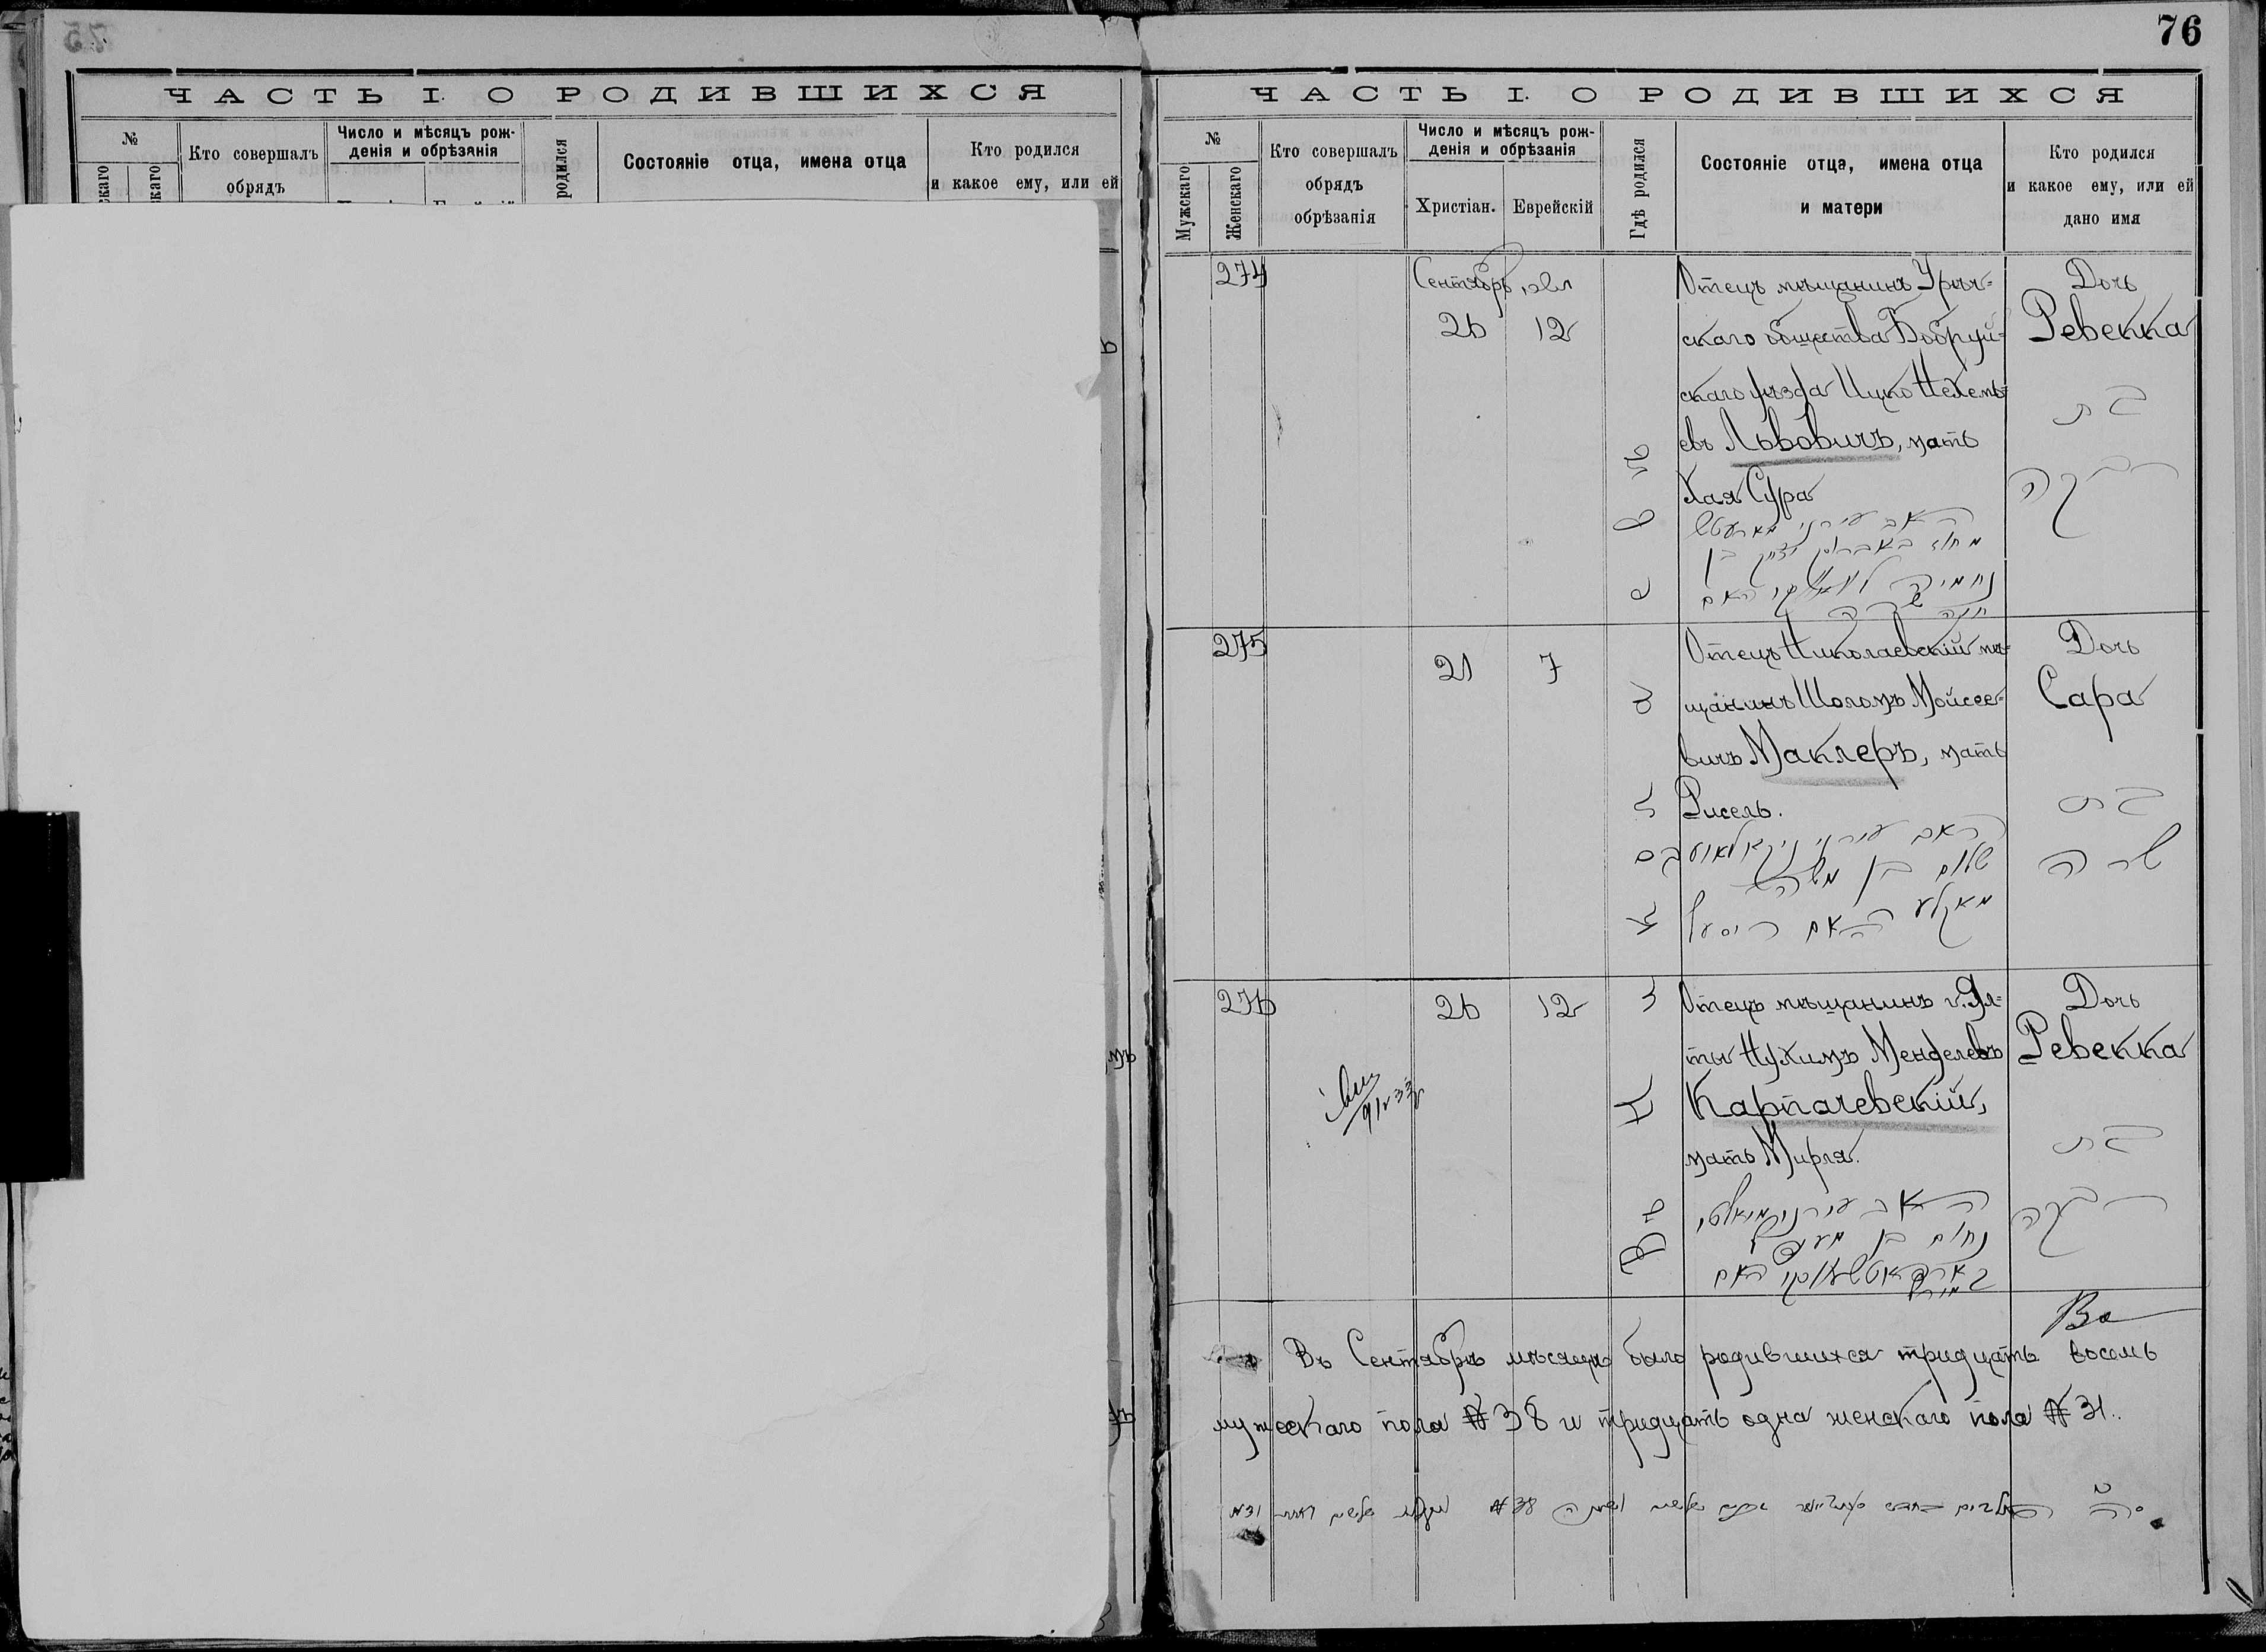 75
ЧАСТЬ I. О РОДИВШИХСЯ
№
Кто совершалъ
обрядъ
Число и мѣсяцъ рож-
денія и обрѣзанія
родился
Состояніе отца, имена отца
Кто родился
и какое ему, или ей
скаго
скаго
76
ЧАСТЬ I. О РОДИВШИХСЯ
№
Мужскаго
Женскаго
Кто совершалъ
обрядъ
обрѣзанія
Число и мѣсяцъ рож-
денія и обрѣзанія
Христіан.
Еврейскій
Гдѣ родился
Состояніе отца, имена отца
и матери
Кто родился
и какое ему, или ей
дано имя
274
Сентябрь
26
12
Отецъ мѣщанинъ Урѣч-
скаго общества Бобруй-
скаго уѣзда Ицко Нехемь-
евъ Львовичъ, мать
Хая Сура
האב עירני
נחמיה האם
חיה שרה
Дочь
Ревекка
בת
רבקה
275
21
7
Отецъ Николаевскій мѣ-
щанинъ Шоломъ Мойсее-
вичъ Маклеръ, мать
Рисель.
האב עירני
שלום בן משה
מאקלער האם ריסעל
Дочь
Сара
בת
שרה
276
26
12
Отецъ мѣщанинъ г. Ял-
ты Нухимъ Менделевъ
Карпачевскій,
мать Мирля.
האב עירני מיאלטי
נחום בן מענדל
האם
Дочь
Ревекка
בת
רבקה
Въ Сентябрѣ мѣсяцѣ было родившихся тридцать восемь
мужескаго пола № 38 и тридцать одна женскаго пола № 31.
№ 38
№ 31